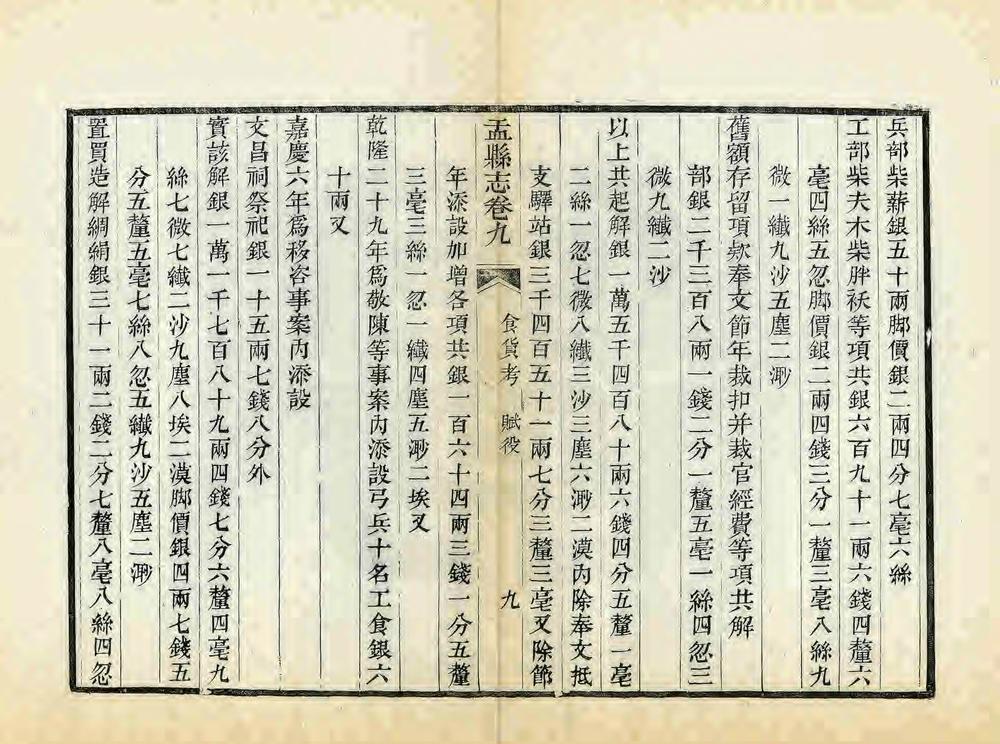 兵部柴薪銀五十兩脚價銀二兩四分七毫六絲
工部柴夫木柴胖袄等項共銀六百九十一兩六錢四釐六
毫四絲五忽脚價銀二兩四錢三分一釐三毫八絲九
微一纖九沙五塵二渺
舊額存留項款奉文節年裁扣并裁官經費等項共解
部銀二千三百八兩一錢二分一釐五毫一絲四忽三
微九纖二沙
以上共起解銀一萬五千四百八十兩六錢四分五釐一毫
二絲一忽七微八纖三沙三塵六渺二漠內除奉文抵
支驛站銀三千四百五十一兩七分三釐三毫又除節
盂縣志卷九
食貨考 賦役
九
年添設加增各項共銀一百六十四兩三錢一分五釐
三毫三絲一忽一纖四塵五渺二埃又
乾隆二十九年爲敬陳等事案內添設弓兵十名工食銀六
十兩又
嘉慶六年爲移咨事案內添設
文昌祠祭祀銀一十五兩七錢八分外
實該解銀一萬一千七百八十九兩四錢七分六釐四毫九
絲七微七纖二沙九塵八埃二漠脚價銀四兩七錢五
分五釐五毫七絲八忽五纖九沙五塵二渺
置買造解綢絹銀三十一兩二錢二分七釐八毫八絲四忽